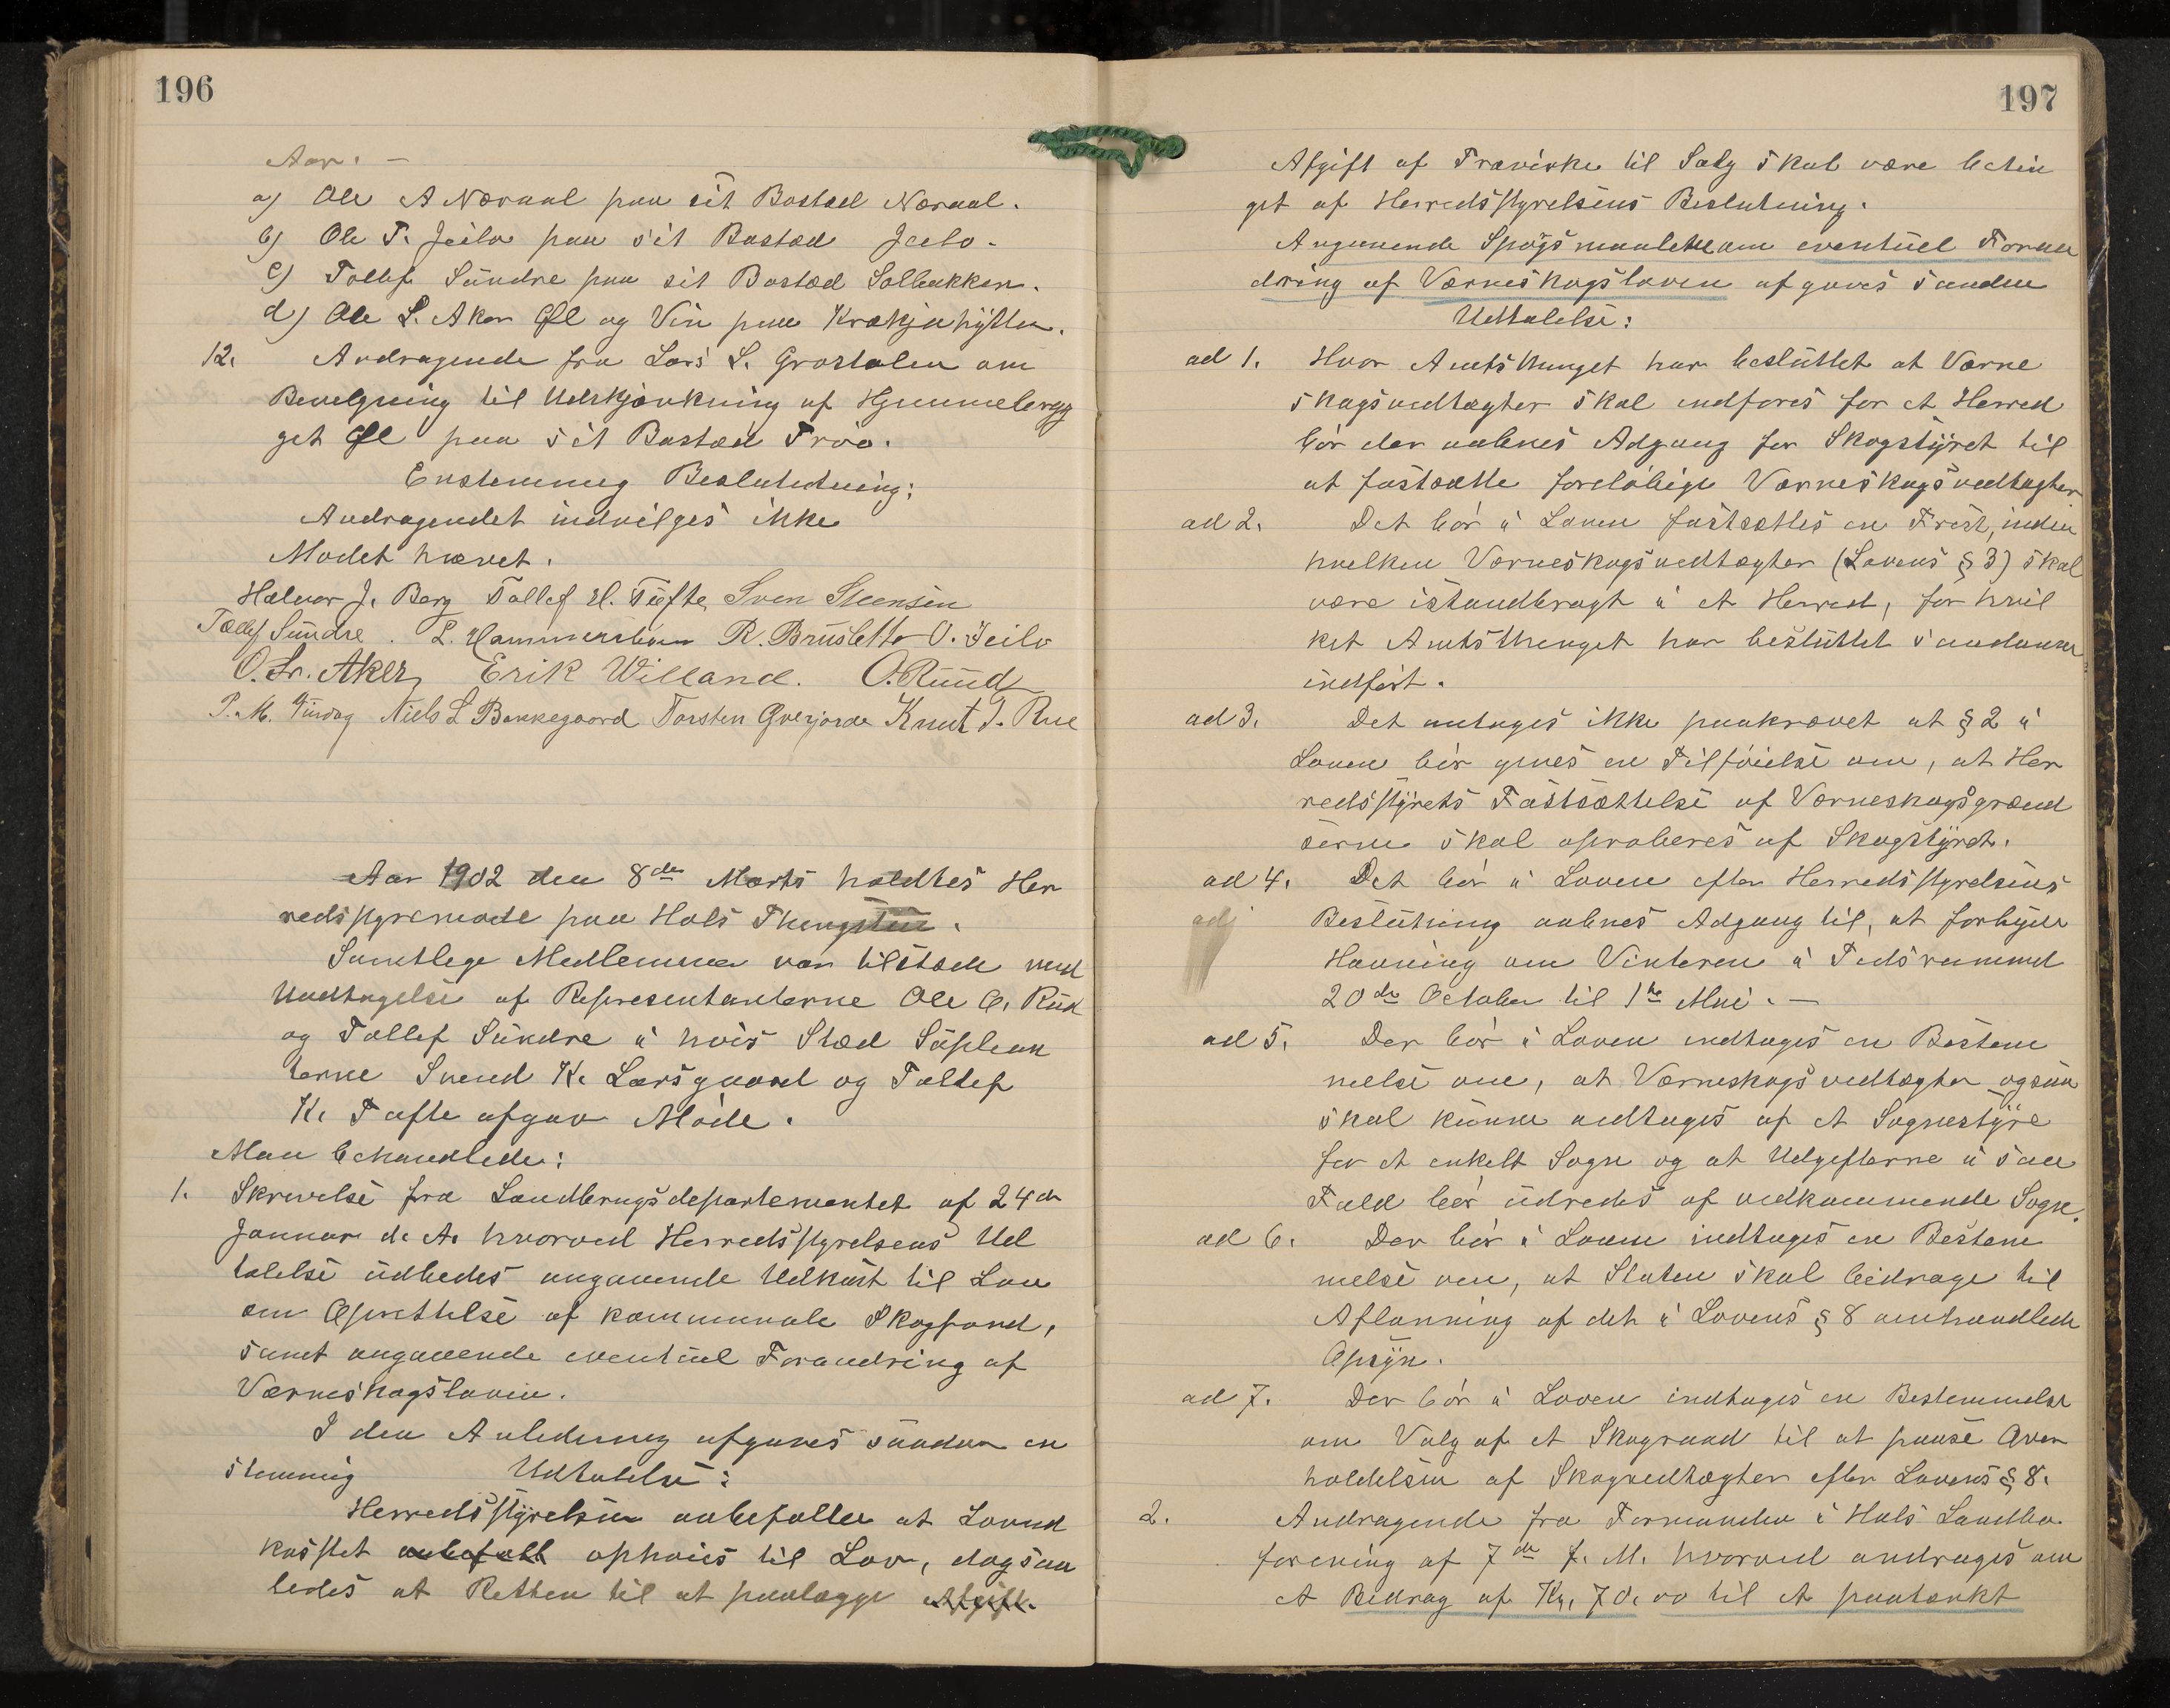 196
Aar. —
a) Ole A Næraal paa sit Bostæd Næraal.
b) Ole T. Jeilo paa sit Bostæd Jeilo.
c) Tollef Sundre paa sit Bostæd Solbakken.
d) Ole L. Aker Øl og Vin paa Krækjahytten.
12. Andragende fra Lars L. Grostølen om
Bevelgning til Udskjænkning af Hjemmebryg
get Øl paa sit Bostæd Froo.
Enstemmig Beslutedning:
Andragendet indvilges ikke
Mødet hævet.
Halvor J. Berg Tollef H. Tufte Sven Steensen
Tollef Sundre. L. Hammersbøen R. Brusletto O. Jeilo
O. Ls. Aker Erik Willand. O. Ruud
P. M. Tindog Niels L Bakkegaard Torsten Qverjorde Knut T. Rue
Aar 1902 den 8de Marts holdtes Her
redsstyremøde paa Hols Thingstue.
Samtlege Medlemmer var tilstæde med
Undtagelse af Representanterne Ole O. Rud
og Tollef Sundre i hvis Stæd Suplean
terne Svend K. Larsgaard og Tollef
K. Tufte afgav Møde.
Man behandlede:
1. Skrivelse fra Landbrugsdepartementet af 24de
Januar d. A. hvorved Herredsstyrelsens Ud
talelse udbedes angaaende Udkast til Lov
om Oprettelse af kommunale Skogfond,
samt angaaende eventuel Forandring af
Værneskogsloven.
I den Anledning afgaves saadan en
stemmig Udtalelse:
Herredsstyrelsen anbefaller at Lovud
kastet anbefall ophøies til Lov, dog saa
ledes at Retten til at paalægge Afgift.
197
Afgift af Trævirke til Salg skal være betin
get af Herredsstyrelsens Beslutning.
Angaaende Spøgsmaalet om eventuel Foran
dring af Værneskogsloven afgaves saadan
Udtalelse:
ad 1. Hvor Amtsthinget har besluttet at Værne
skogsvedtægter skal indføres for et Herred
bør der aabnes Adgang for Skogstyret til
at fastsætte foreløbige Værneskogsvedtægter
ad 2. Det bør i Loven fastsættes en Frist, inden
hvilken Værneskogsvedtægter (Lovens § 3) skal
være istandbragt i et Herred, for hvil
ket Amtsthinget har besluttet saadanne
indført.
ad 3. Det antages ikke paakrævet at § 2 i
Loven bør gives en Tilføielse om, at Her
redsstyrets Fastsættelse af Værneskogsgrænd
serne skal aproberes af Skogstyret.
ad 4. Det bør i Loven efter Herredsstyrelsens
adj Beslutning aabnes Adgang til, at forbyde
Havning om Vinteren i Tidsrummet
20de October til 1te Mai. —
ad 5. Der bør i Loven indtages en Bestem
melse om, at Værneskogsvedtægter ogsaa
skal kunne vedtages af et Sognestyre
for et enkelt Sogn og at Udgifterne i saa
Fald bør udredes af vedkommende Sogn.
ad 6. Der bør i Loven indtages en Bestem
melse om, at Staten skal bidrage til
Aflønning af det i Lovens § 8 omhandlede
Opsyn.
ad 7. Der bør i Loven indtages en Bestemmelse
om Valg af et Skograad til at paase Over
holdelsen af Skogvedtægter efter Lovens § 8.
2. Andragende fra Formanden i Hols Landbo
forening af 7de f. M. hvorved andrages om
et Bidrag af Kr. 70.00 til et paatænkt